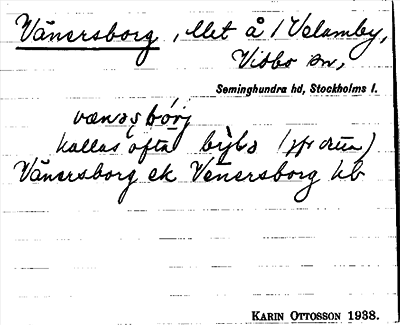 Vänersborg, lllet å /Velamby,
Vidbo sn,
Seminghundra hd, Stockholms l.
vænəṣbórj
kallas ofta bỳlə (jfr detta)
Vänersborg ek Venersborg hb
KARIN OTTOSSON 1938.